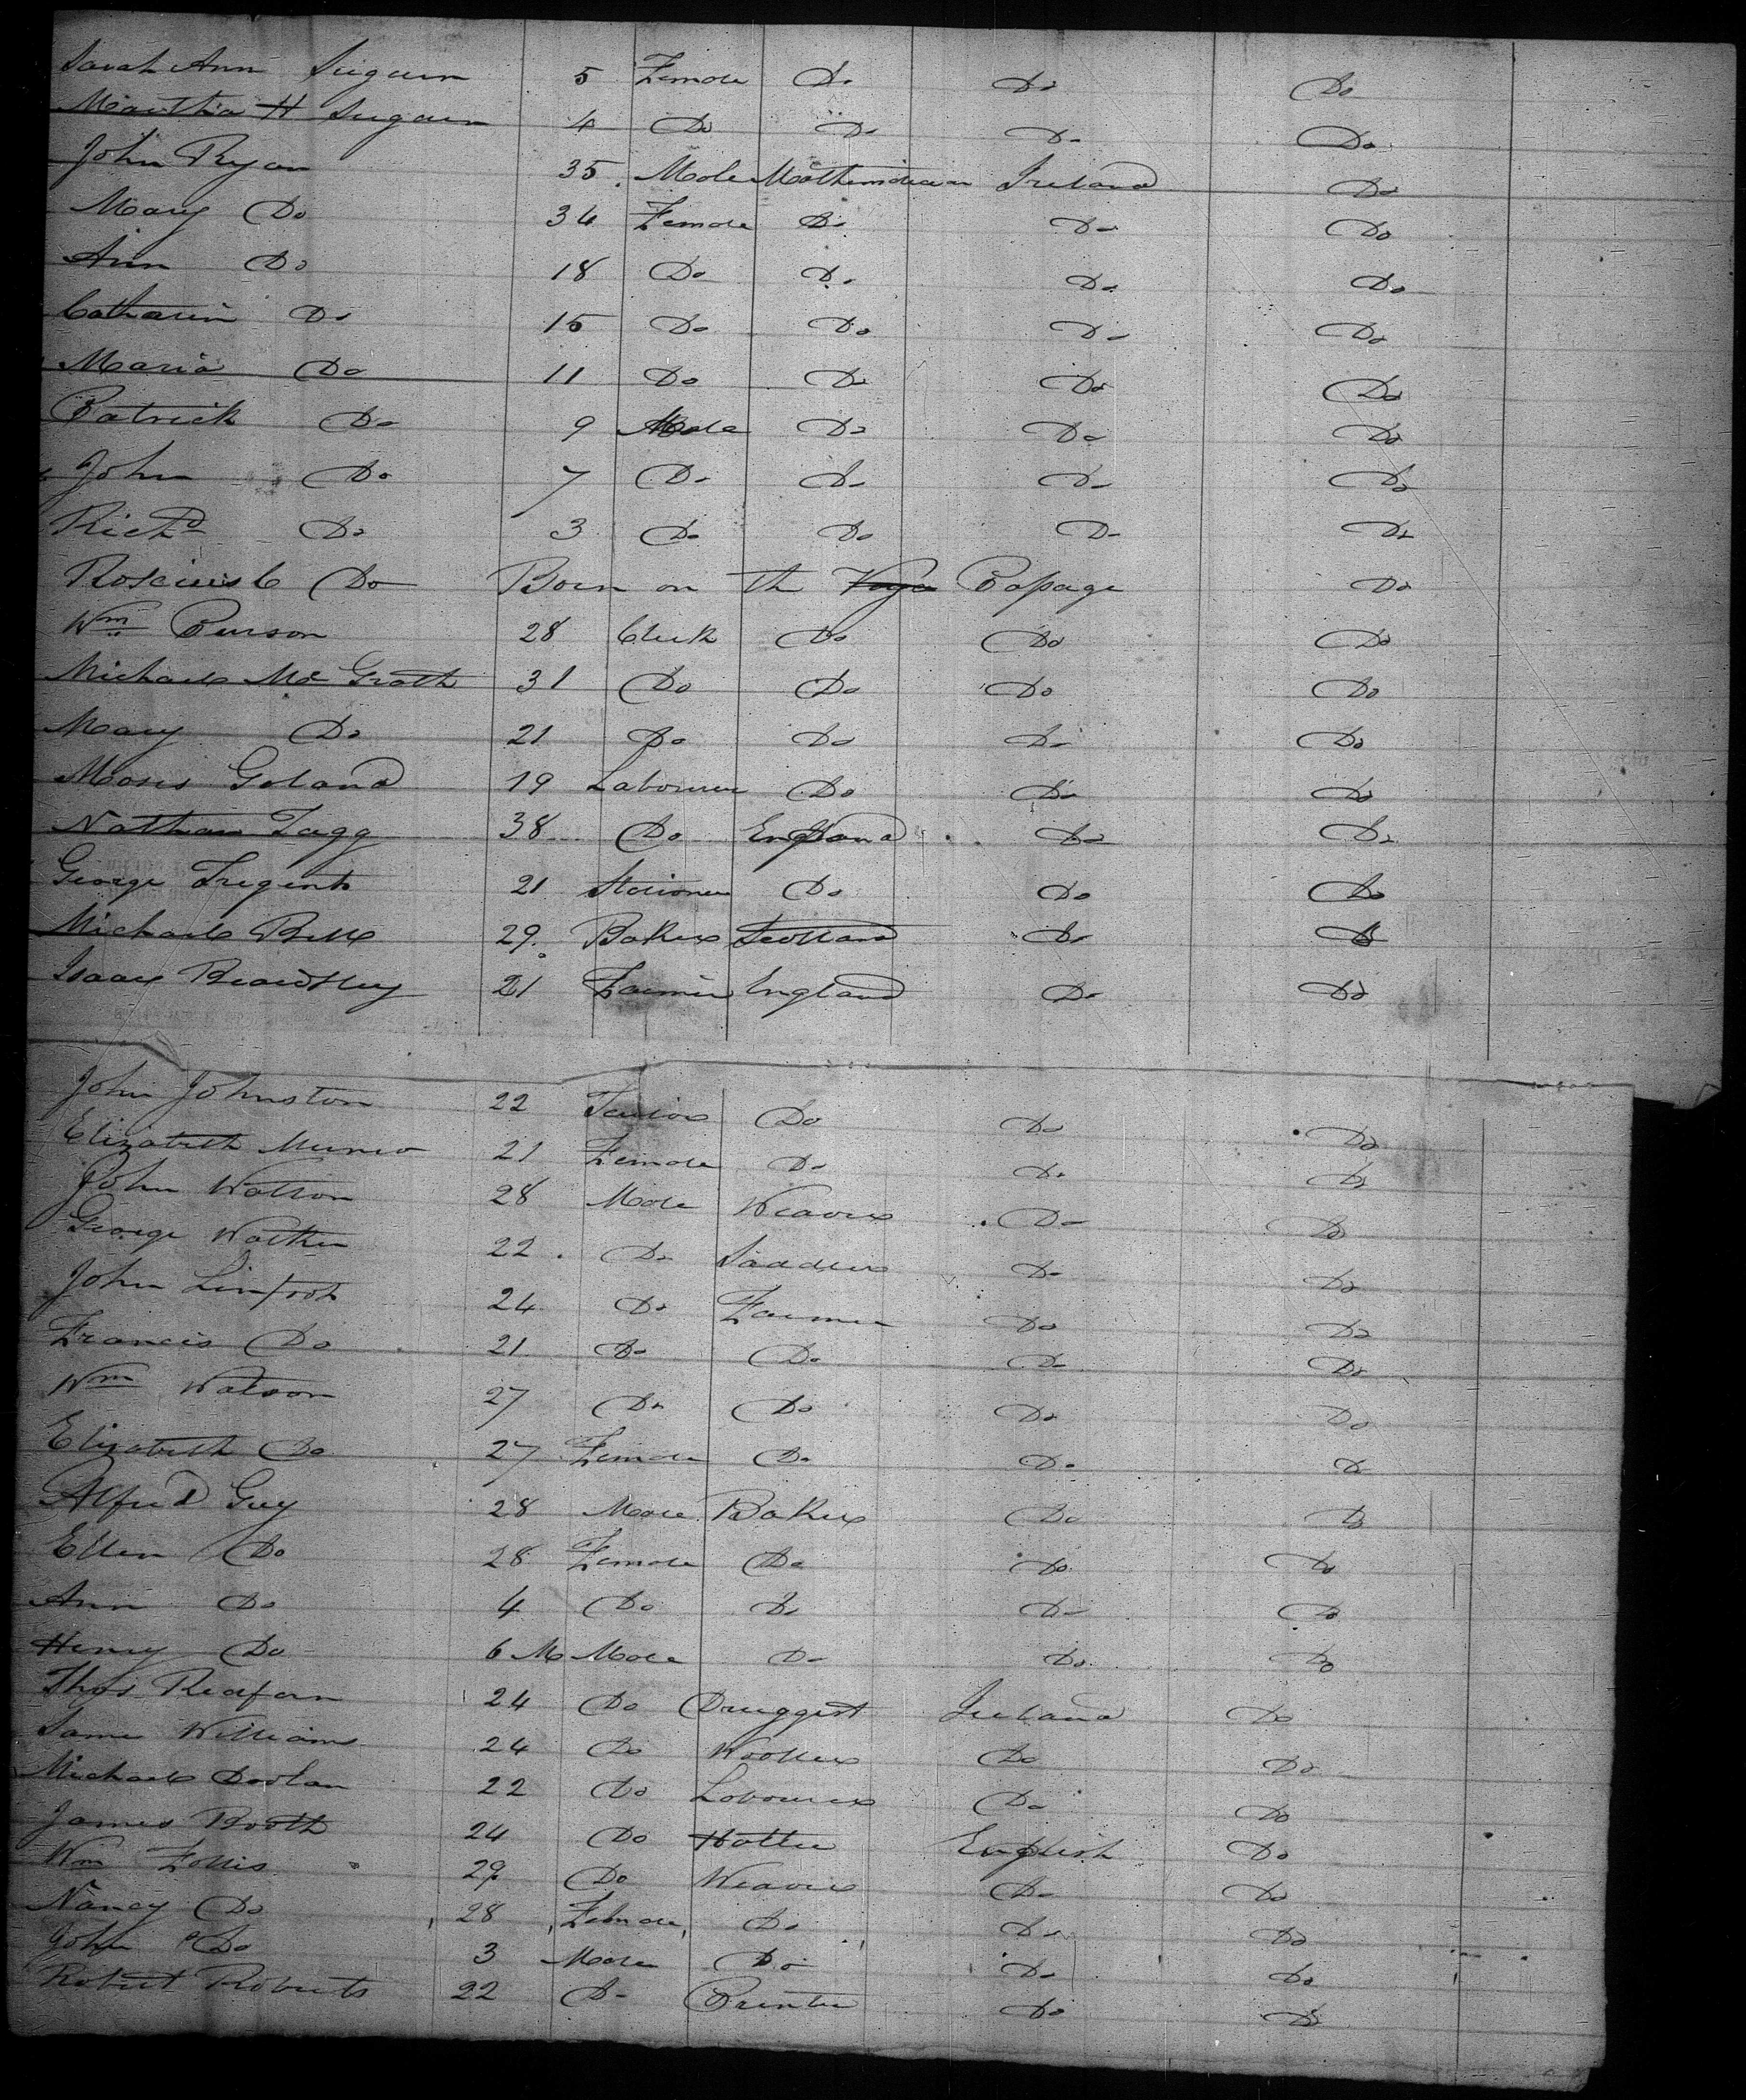 Sarah Ann Sugam 5 Female Do Do Do
Martha H Sugam 4 Do Do Do Do
John Ryan 35 Male Mathemidican Ireland Do
Mary Do 34 Female Do Do Do
Ann Do 18 Do Do Do Do
Catharin Do 15 Do Do Do Do
Maria Do 11 Do Do Do Do
Patrick Do 9 Male Do Do Do
John Do 7 Do Do Do Do
Richd Do 3 Do Do Do Do
Do Born on th Voya Passage Do
Wm Purson 28 Clerk Do Do Do
Michael Mc Grath 31 Do Do Do Do
Mary Do 21 Do Do Do Do
Moses Goland 19 Labourer Do Do Do
Nathan Tagg 38 Do England Do Do
George Tregent 21 Stationer Do Do Do
Michael Bell 29 Baker Scotland Do Do
Isaac Beardsley 21 Farmer England Do Do
John Johnston 22 Tailor Do Do Do
Elizabeth Munro 21 Female Do Do Do
John Watson 28 Male Weaver Do Do
George Walker 22 Do Saddler Do Do
John Linfoot 24 Do Farmer Do Do
Francis Do 21 Do Do Do Do
Wm Watson 27 Do Do Do Do
Elizabeth Do 27 Female Do Do Do
Alfred Guy 28 Male Baker Do Do
Ellen Do 28 Female Do Do Do
Ann Do 4 Do Do Do Do
Henry Do 6 M Male Do Do Do
Thos Redfarn 24 Do Druggist Ireland Do
Williams 24 Do Do Do
Michael Doolan 22 Do Labourer Do Do
James Booth 24 Do Hatter English Do
Wm Follis 29 Do Weaver Do Do
Nancy Do 28 Female Do Do Do
John Do 3 Male Do Do Do
Robert Roberts 22 Do Printer Do Do